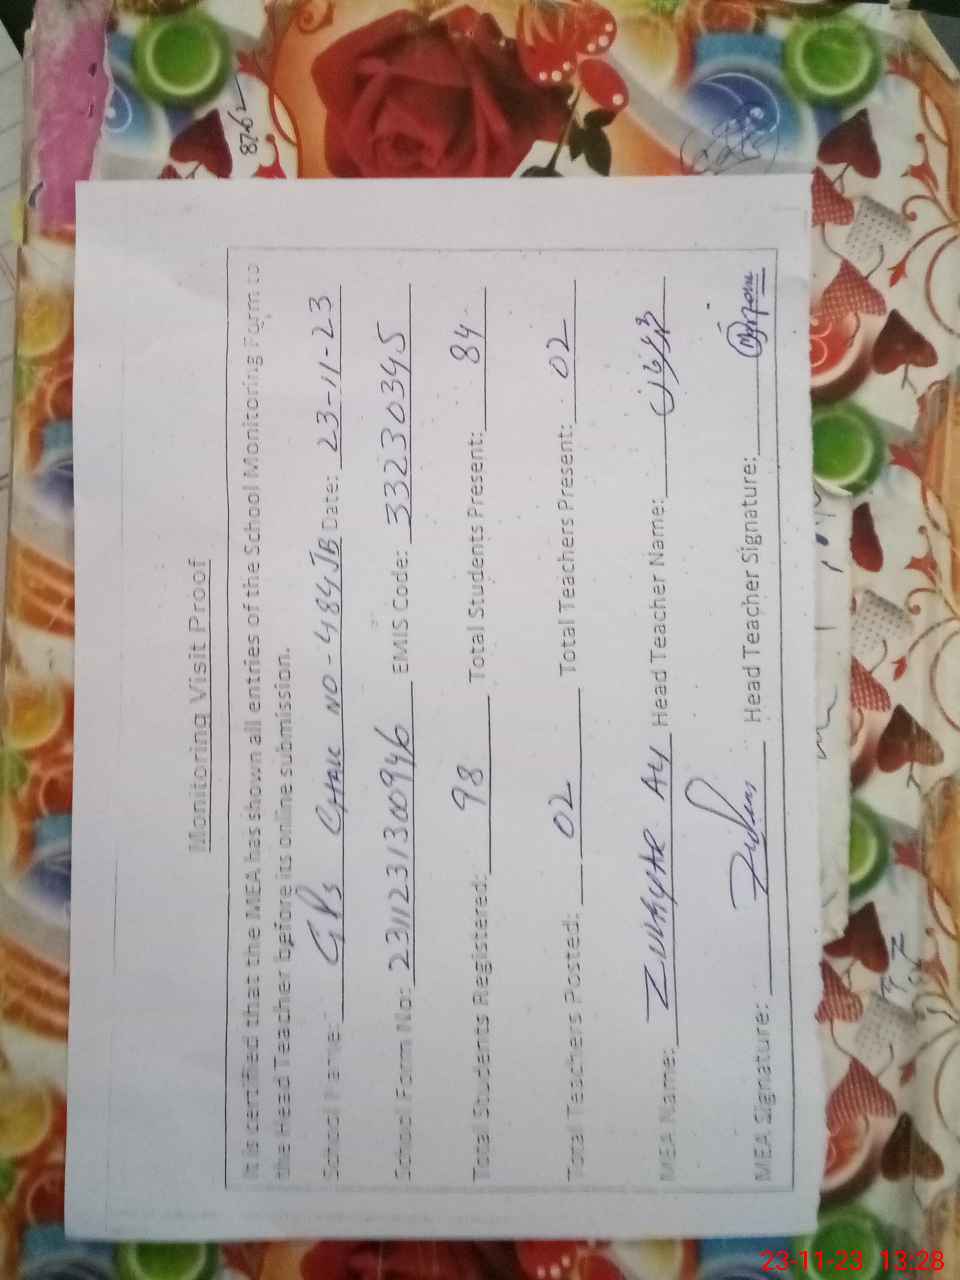 Monitoring Visit Proof
It is certified that the MEA has shown all entries of the School Monitoring Form to
the Head Teacher before its online submission.
School Name: GPS CHAK NO-484JB Date: 23-11-23
School Form No: 2311231300946 EMIS Code: 33230345
Total Students Registered: 98 Total Students Present: 84
Total Teachers Posted: 02 Total Teachers Present: 02
MEA Name: Head Teacher Name:
MEA Signature: Head Teacher Signature:
8762
23-11-23 13:28